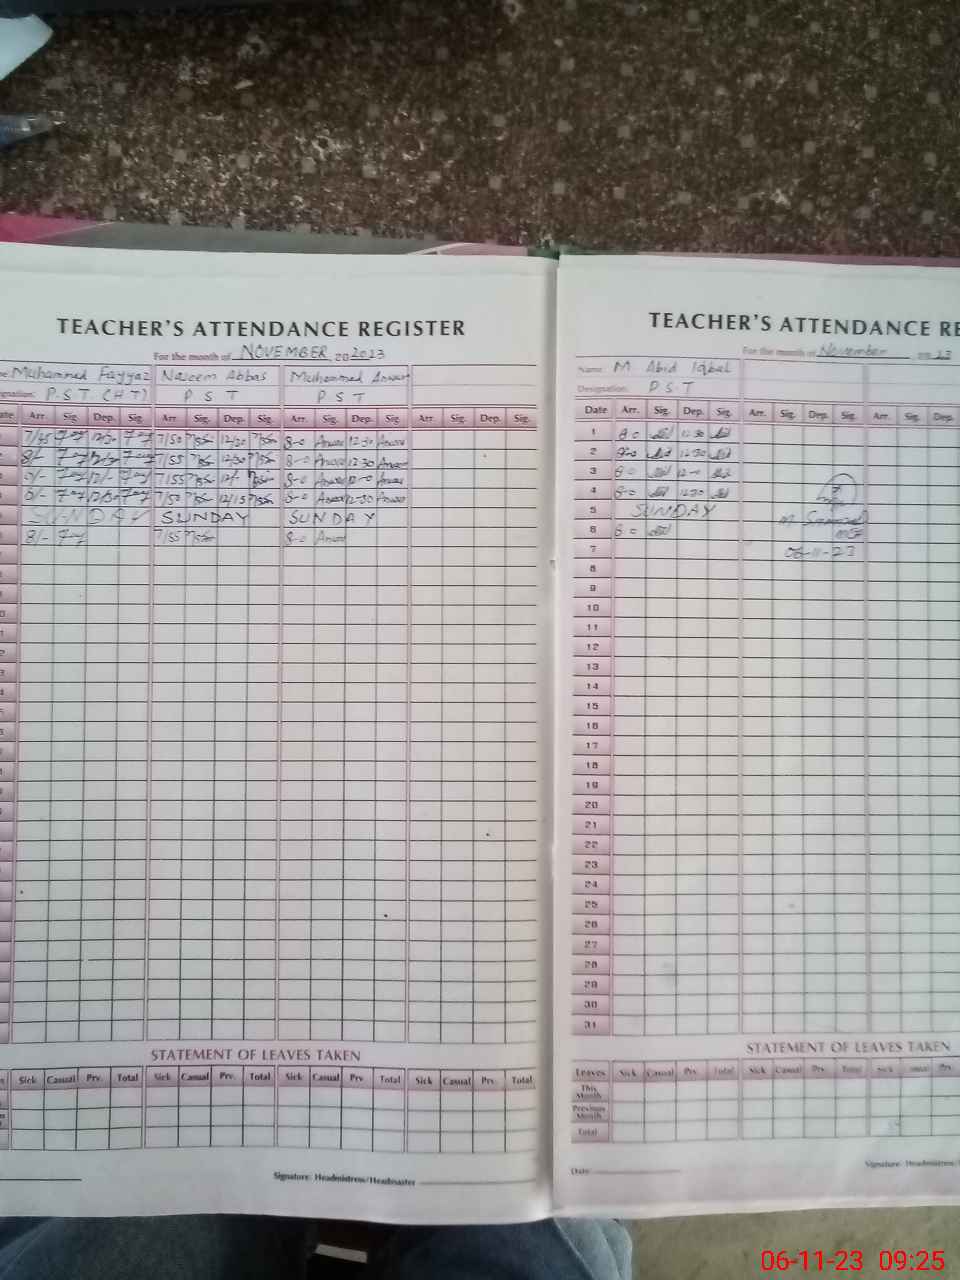 TEACHER'S ATTENDANCE REGISTER
For the month of NOVEMBER 20 2023
Muhammad Fayyaz Naseem Abbas Muhammad Anwar
P.S.T. (H.T) P S T P S T
Arr. Sig. Dep. Sig. Arr. Sig. Dep. Sig. Arr. Sig. Dep. Sig. Arr. Sig. Dep. Sig.
7/50 12/30 8-0 Anwar 12-30 Anwar
8/- 7/55 12/30 8-0 Anwar 12-30 Anwar
7/55 12/- 8-0 Anwar 12-0 Anwar
7/50 12/15 8-0 Anwar 12-30 Anwar
SUNDAY SUNDAY SUNDAY
8/- 7/55 8-0 Anwar
STATEMENT OF LEAVES TAKEN
Sick Casual Prv. Total Sick Casual Prv. Total Sick Casual Prv Total Sick Casual Prv. Total
Signature: Headmistress/Headmaster
TEACHER'S ATTENDANCE RE
For the month of November 20 23
Name: M Abid Iqbal
Designation: P S T
Date Arr. Sig. Dep. Sig. Arr. Sig. Dep. Sig. Arr. Sig. Dep.
1 8-0 12-30
2 8-0 12-30
3 8-0 12-0
4 8-0 12-30
5 SUNDAY
6 8-0
7 06-11-23
8
9
10
11
12
13
14
15
16
17
18
19
20
21
22
23
24
25
26
27
28
29
30
31
STATEMENT OF LEAVES TAKEN
Leaves Sick Casual Prv. Total Sick Casual Prv. Total Sick Casual Prv.
This Month
Previous Month
Total
Date
Signature: Headmistress/
06-11-23 09:25